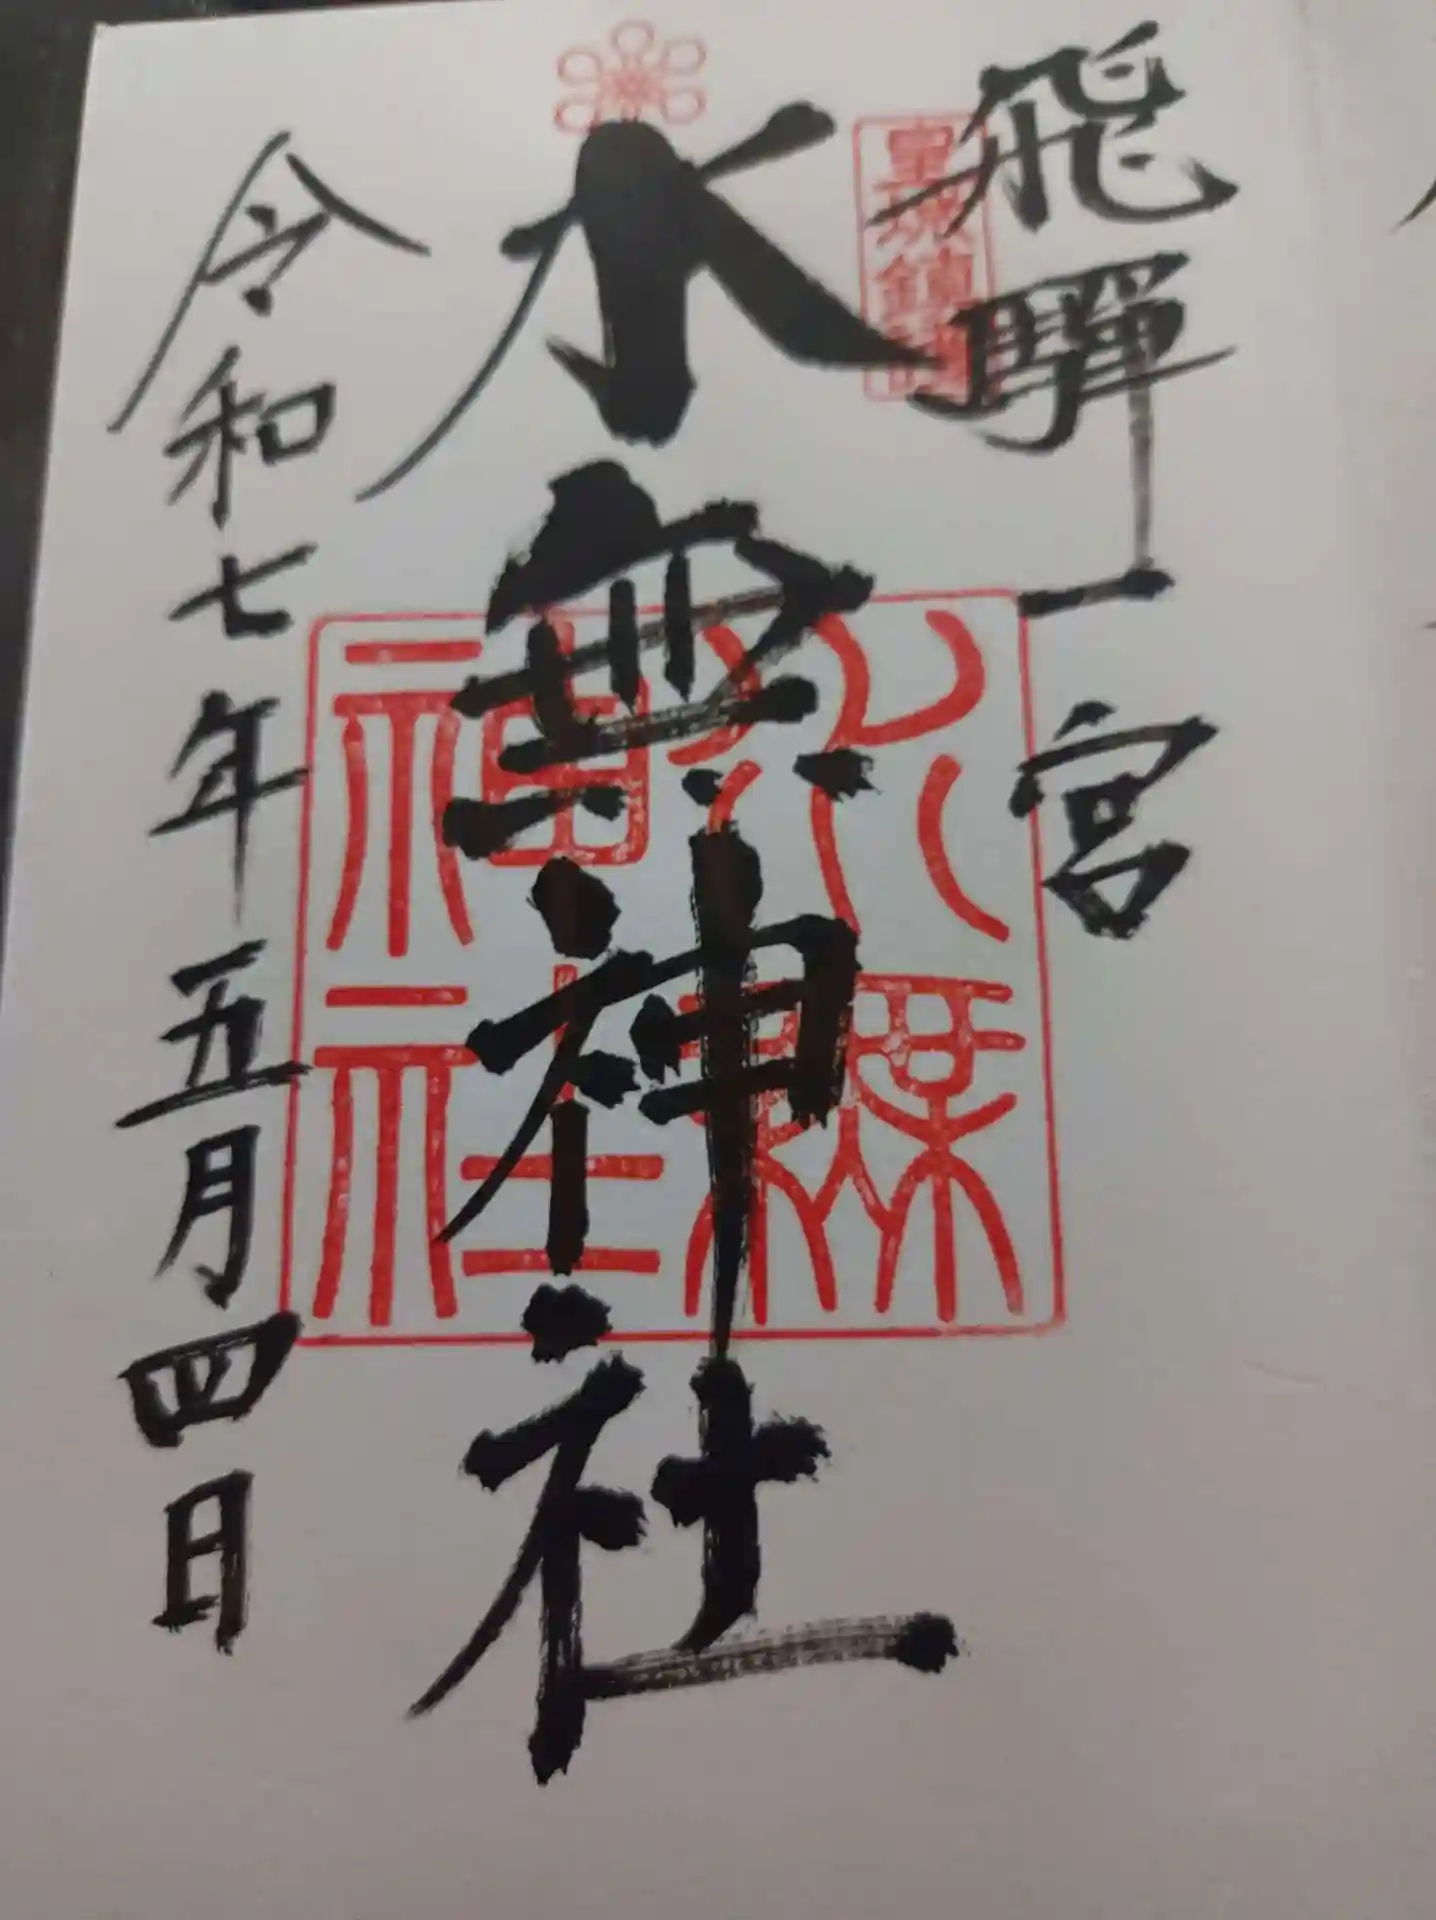 飛騨一宮
水無神社
水無神社
令和七年五月四日